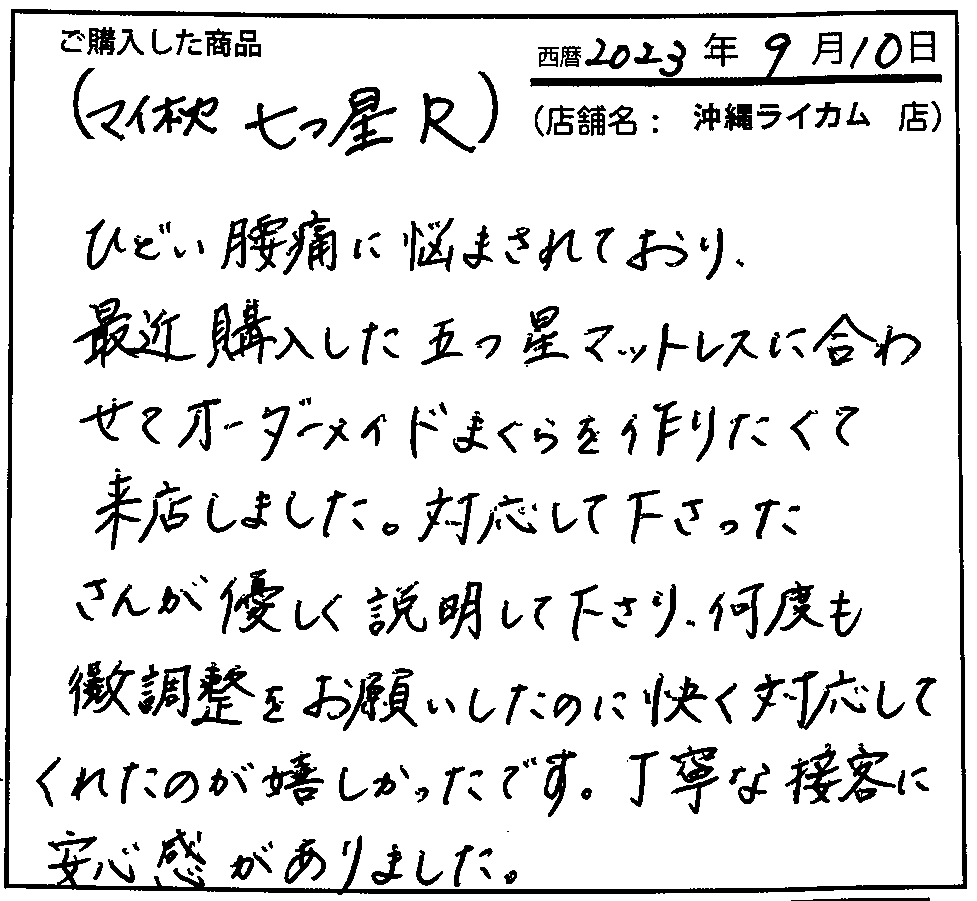 ご購入した商品
西暦2023年9月10日
(マイ枕 七つ星R)
(店舗名： 沖縄ライカム 店)
ひどい腰痛に悩まされており、
最近購入した五つ星マットレスに合わ
せてオーダーメイドまくらを作りたくて
来店しました。対応して下さった
さんが優しく説明して下さり、何度も
微調整をお願いしたのに快く対応して
くれたのが嬉しかったです。丁寧な接客に
安心感がありました。